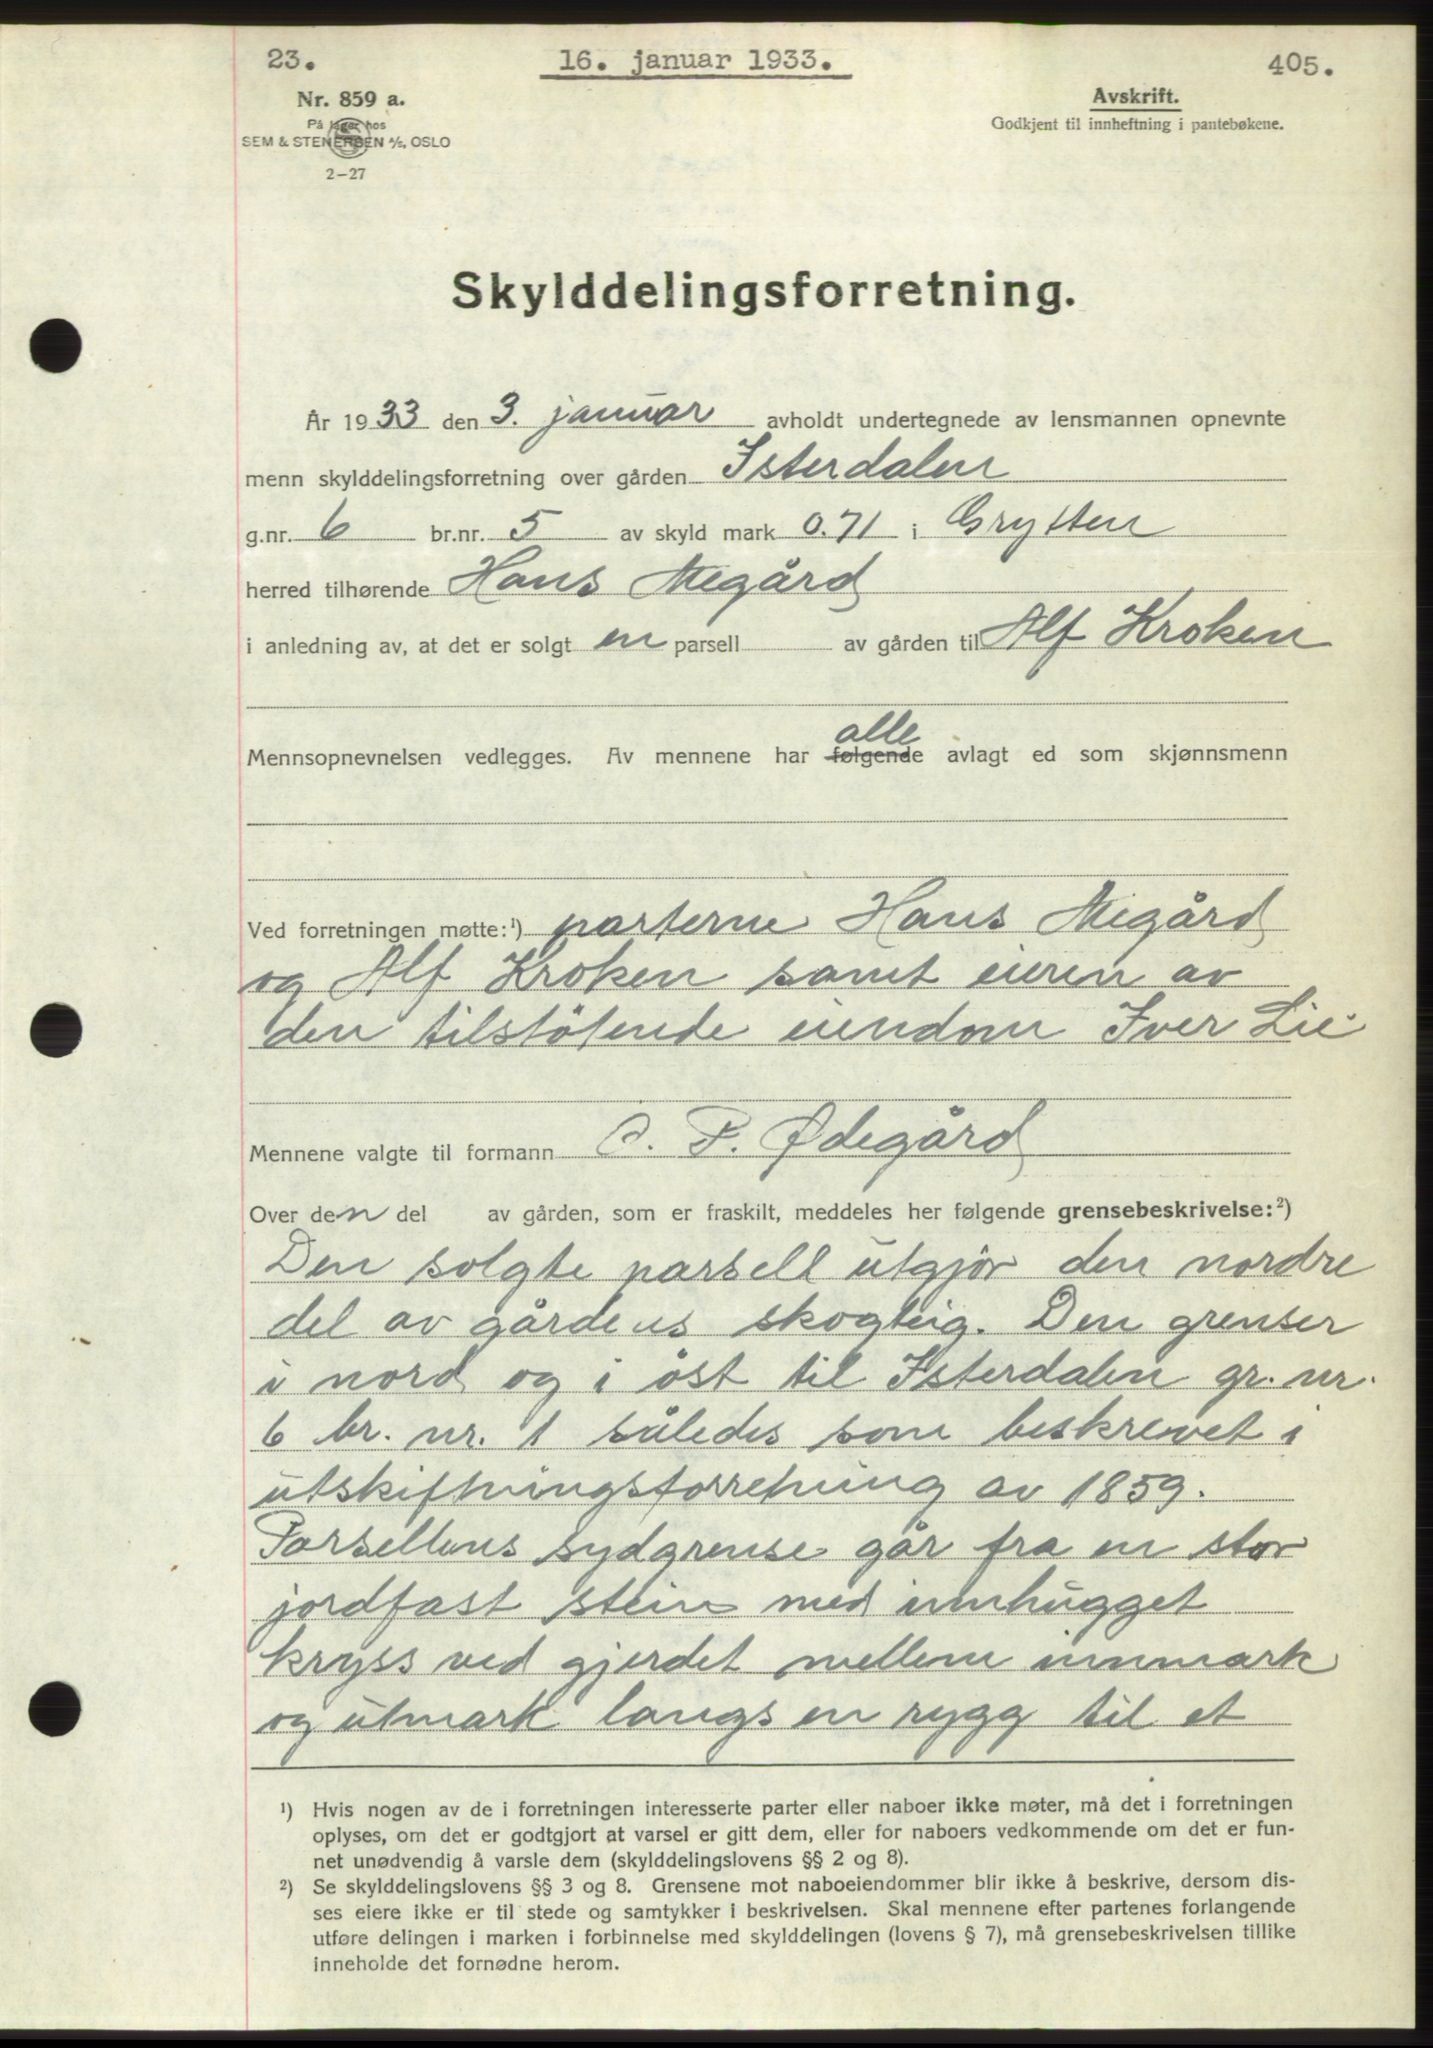 23.
16. januar 1933.
405.
Nr. 859 a.
Avskrift.
På lager hos
Godkjent til innheftning i pantebøkene.
SEM & STENERSEN A/S, OSLO
2-27
Skylddelingsforretning.
År 1933 den 3. januar avholdt undertegnede av lensmannen opnevnte
menn skylddelingsforretning over gården Isterdalen
g.nr. 6 br.nr. 5 av skyld mark 0.71 i Grytten
herred tilhørende Hans Megård
i anledning av, at det er solgt en parsell av gården til Alf Kroken
alle
Mennsopnevnelsen vedlegges. Av mennene har følgende avlagt ed som skjønnsmenn
Ved forretningen møtte:¹) parterne Hans Megård
og Alf Kroken samt eieren av
den tilstötende eiendom Iver Lie
Mennene valgte til formann O. P. Ødegård
Over den del av gården, som er fraskilt, meddeles her følgende grensebeskrivelse:²)
Den solgte parsell utgjör den nordre
del av gårdens skogteig. Den grenser
i nord og i öst til Isterdalen gr. nr.
6 br. nr. 1 således som beskrevet i
utskiftningsforretning av 1859.
Parsellens sydgrense går fra en stor
jordfast stein med innhugget
kryss ved gjerdet mellem innmark
og utmark langs en rygg til et
¹) Hvis nogen av de i forretningen interesserte parter eller naboer ikke møter, må det i forretningen
oplyses, om det er godtgjort at varsel er gitt dem, eller for naboers vedkommende om det er fun-
net unødvendig å varsle dem (skylddelingslovens §§ 2 og 8).
²) Se skylddelingslovens §§ 3 og 8. Grensene mot naboeiendommer blir ikke å beskrive, dersom dis-
ses eiere ikke er til stede og samtykker i beskrivelsen. Skal mennene efter partenes forlangende
utføre delingen i marken i forbinnelse med skylddelingen (lovens § 7), må grensebeskrivelsen tillike
inneholde det fornødne herom.